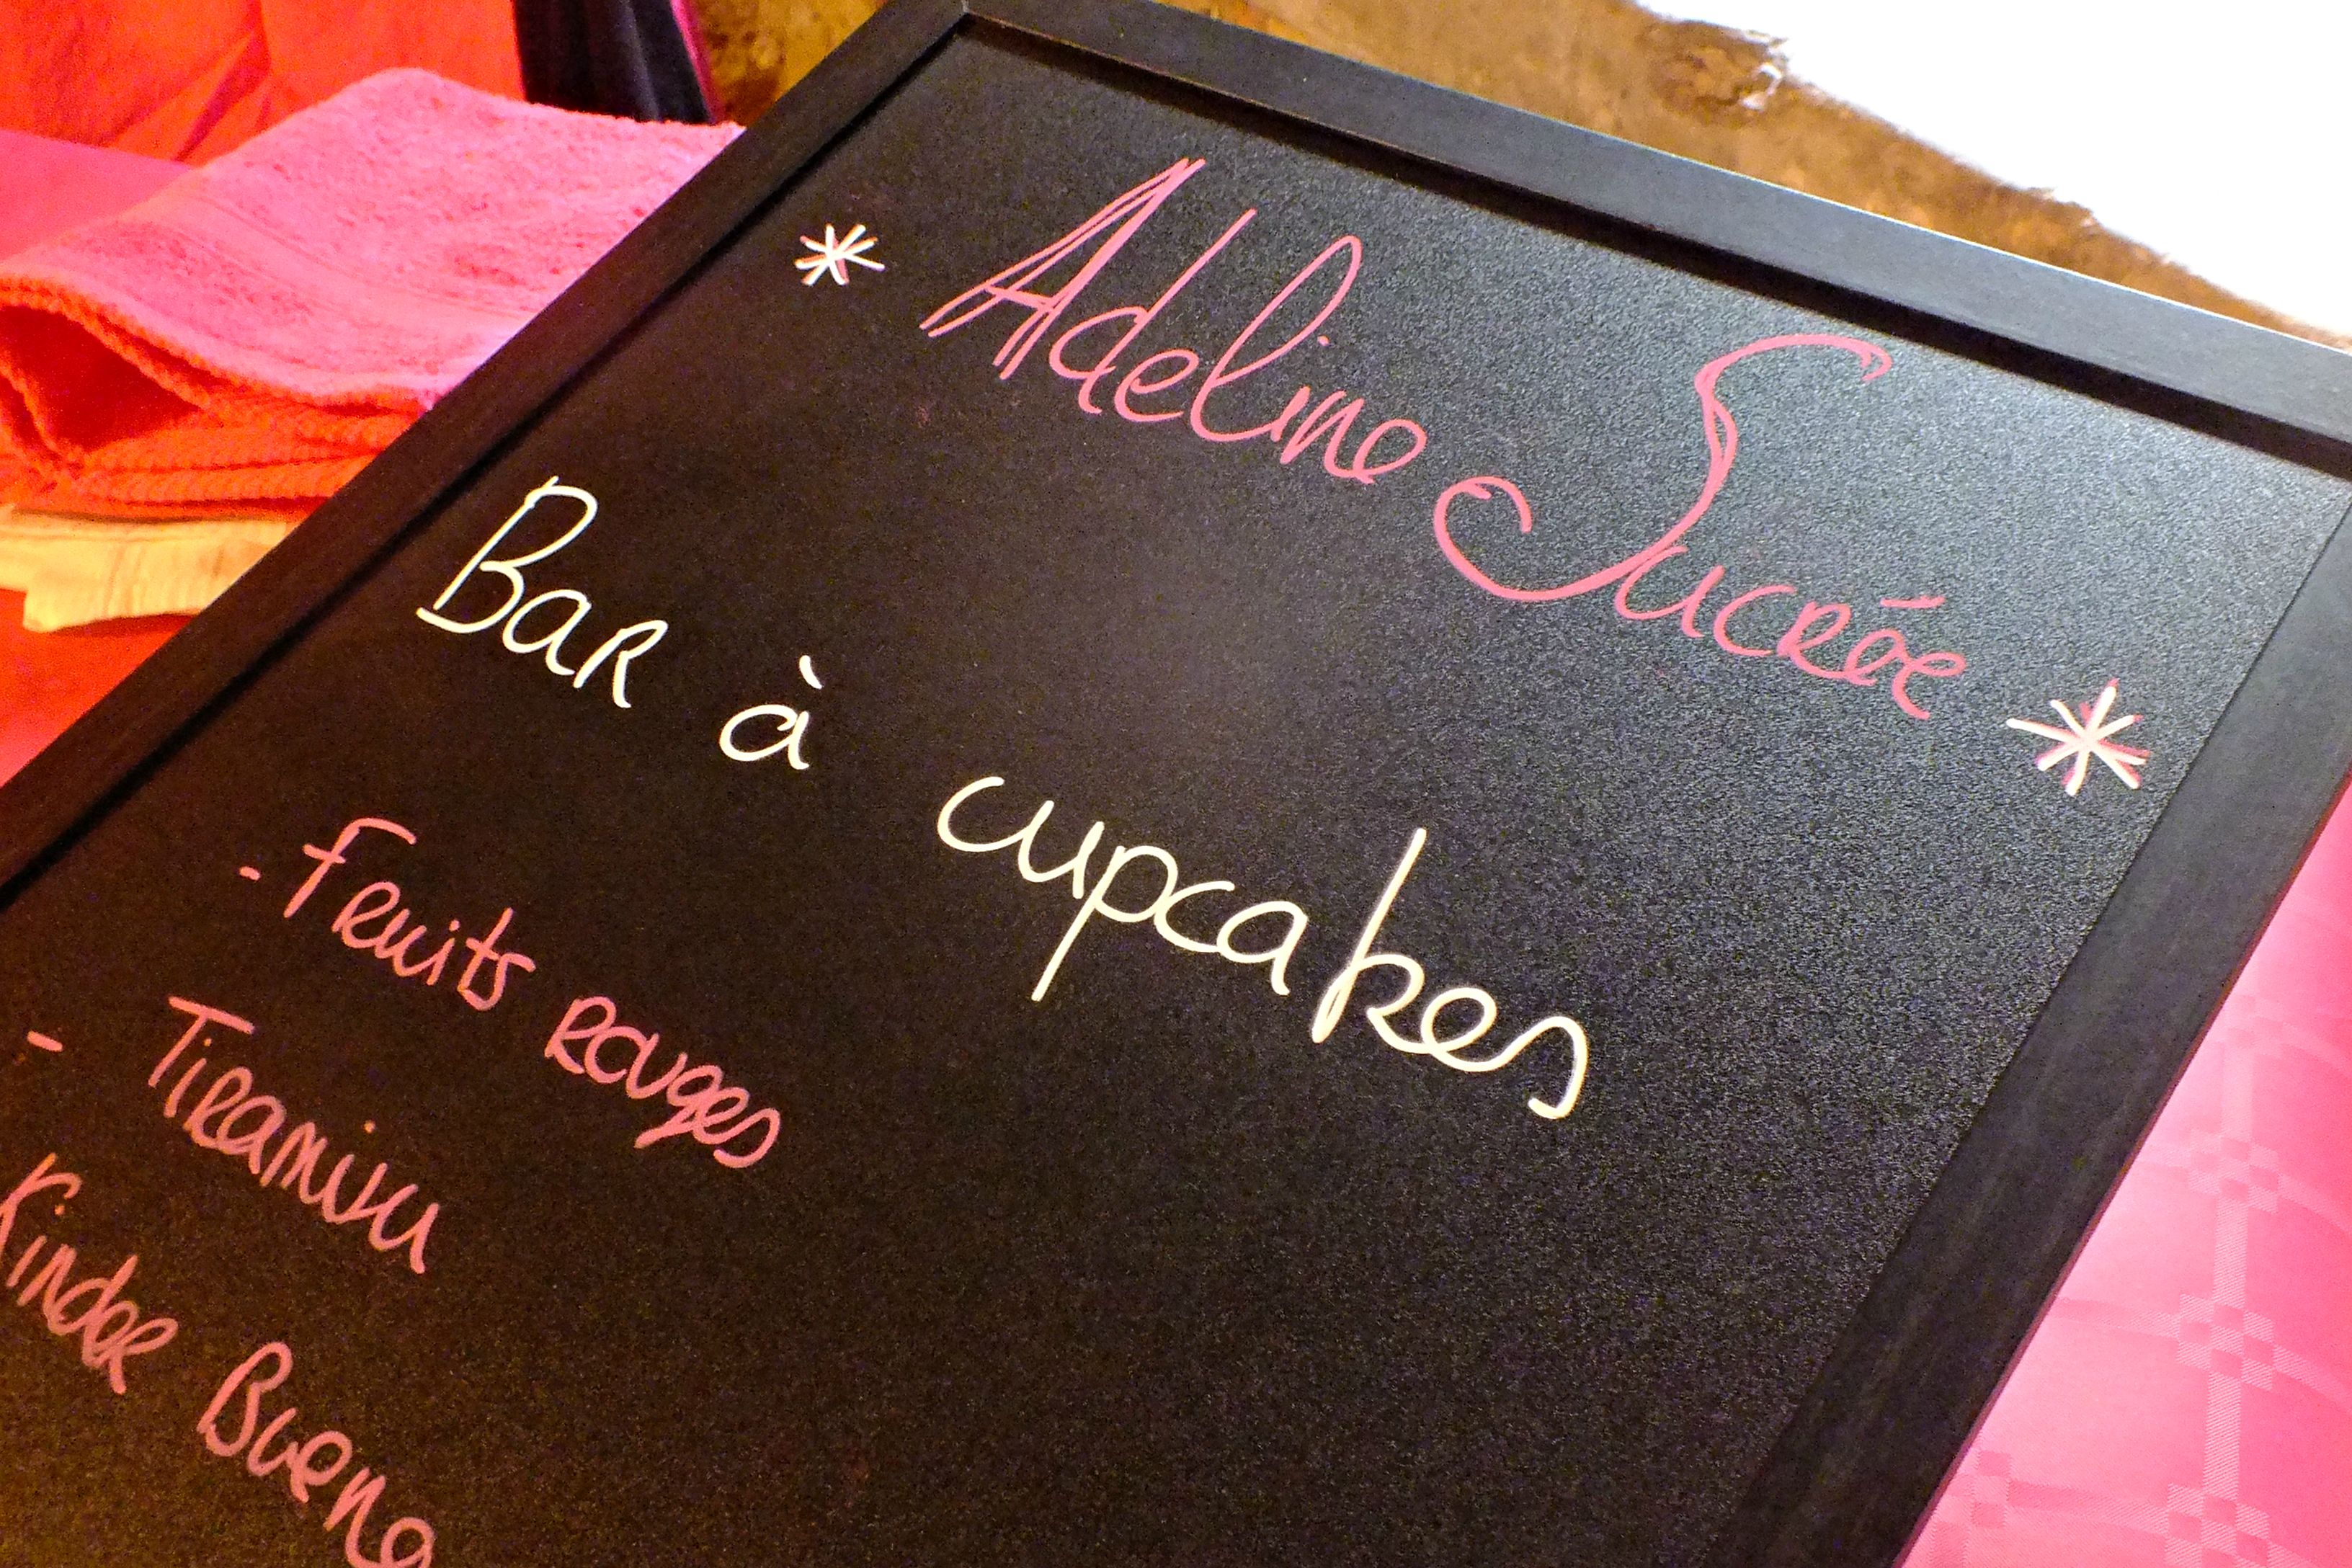 * Adeline Sucrée *
Bar à cupcakes
- Fruits rouges
- Tiramisu
Kinder Bueno